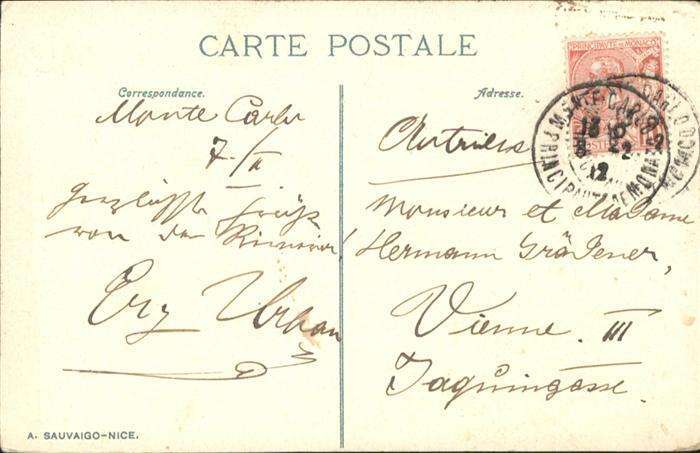 CARTE POSTALE
PRINCIPAUTÉ DE MONACO
Correspondance.
Monte Carlo
7/II
herzlichste Grüße
von der Riviera!
Erz Urban
Adresse.
Autriche
MONTE-CARLO
PRINCIPAUTÉ DE MONACO
12
Monsieur et Madame
Hermann Grädener,
Vienne. III
Jaquingasse.
A. SAUVAIGO-NICE.